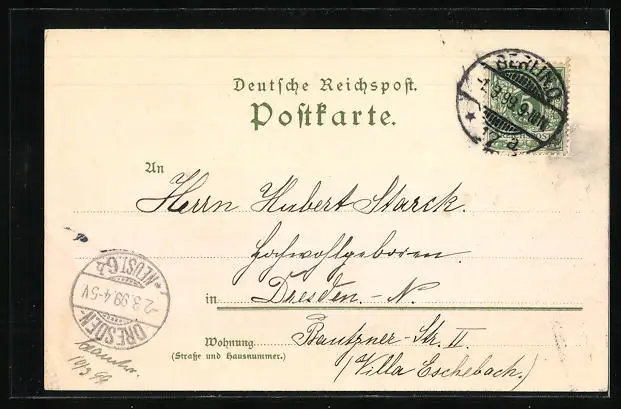 Deutsche Reichspost.
Postkarte.
BERLIN
-1.3.99.9-10N
12 a
An
Herrn Hubert Starck.
Hochwohlgeboren
in Dresden.-N.
Wohnung. Bautzner-Str. II.
(Straße und Hausnummer.)
(Villa Eschebach.)
DRESDEN-NEUST.6
-2.3.99.4-5V
10/3 99